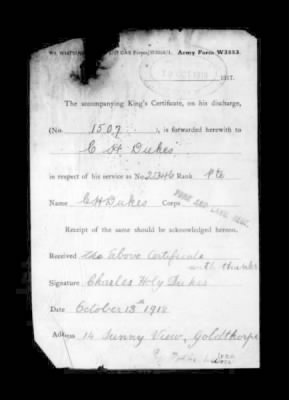 Army Form W3453.
OCT 1918
1917.
The accompanying King's Certificate, on his discharge,
(No. 1507 ), is forwarded herewith to
C H Dukes
in respect of his service as No. 21346 Rank Pte
Name C H Dukes Corps YORK AND LANC. REGT.
Receipt of the same should be acknowledged hereon.
Received the above Certificate
with thanks
Signature Charles Hy Dukes
Date October 13th 1918
Address 14 Sunny View, Goldthorpe